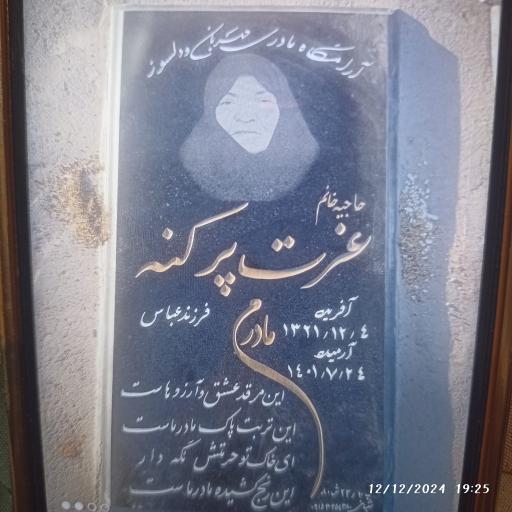 آرامگاه مادری مهربان و دلسوز
حاجیه خانم
عزت پرکنه
فرزند عباس
آفرینه
۱۳۲۱/۱۲/۴
مادرم
آرمیده
۱۴۰۱/۷/۲۴
این مرقد عشق و آرزوهاست
این تربت پاک مادر ماست
ای خاک تو حرمتش نگه دار
این رنج کشیده مادر ماست
12/12/2024 19:25